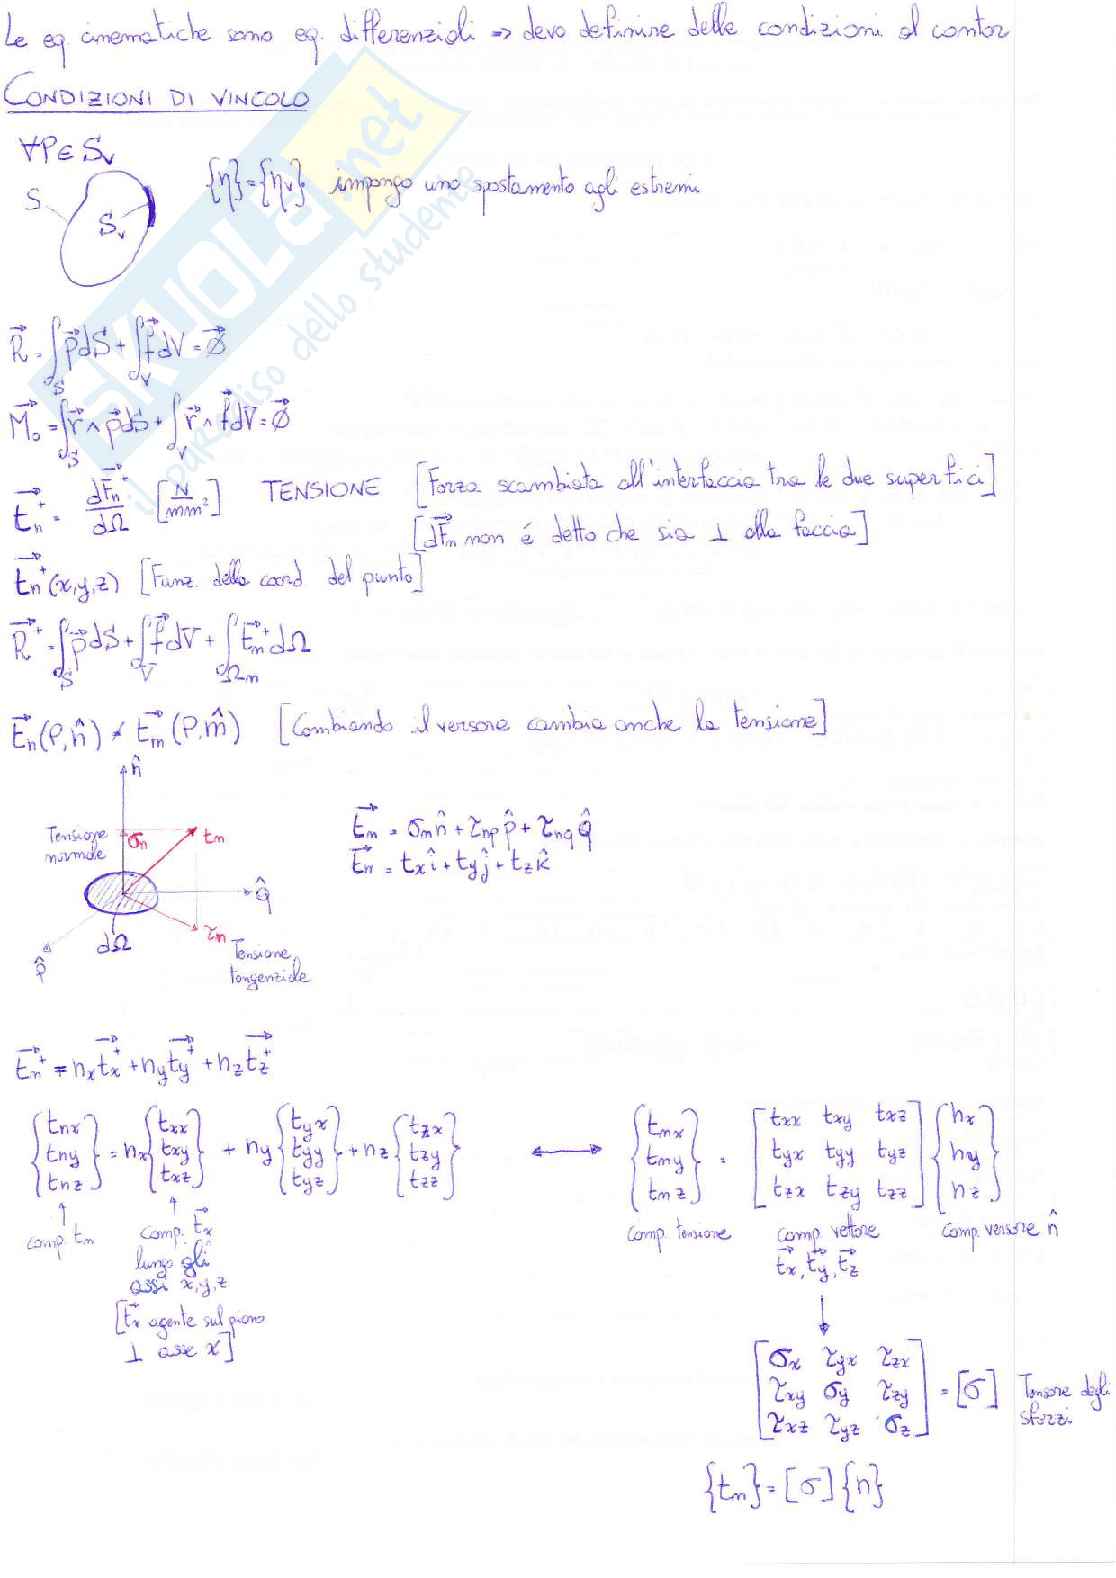 Le eq. cinematiche sono eq. differenziali => devo definire delle condizioni al contor
CONDIZIONI DI VINCOLO
∀P∈Sᵥ
S
Sᵥ
{η}={ηᵥ} impongo uno spostamento agli estremi
R⃗ = ∫_S p⃗ dS + ∫_V f⃗ dV = 0⃗
M⃗₀ = ∫_S r⃗ ∧ p⃗ dS + ∫_V r⃗ ∧ f⃗ dV = 0⃗
t⃗ₙ⁺ = dF⃗ₙ⁺/dΩ [N/mm²] TENSIONE [Forza scambiata all'interfaccia tra le due superfici]
[dF⃗ₙ non é detto che sia ⊥ alla faccia]
t⃗ₙ⁺(x,y,z) [Funz. delle coord del punto]
R⃗⁺ = ∫_S p⃗ dS + ∫_V f⃗ dV + ∫_Ωₙ t⃗ₙ⁺ dΩ
t⃗ₙ(P,n̂) ≠ t⃗ₘ(P,m̂) [Cambiando il versore cambia anche la tensione]
n̂
Tensione
normale
σₙ
tₙ
Q̂
τₙ
dΩ
p̂
Tensione
tangenziale
t⃗ₙ = σₙn̂ + τₙₚp̂ + τ_nq Q̂
t⃗ₙ = tₓî + t_yĵ + t_zk̂
t⃗ₙ⁺ = nₓt⃗ₓ⁺ + n_yt⃗_y⁺ + n_zt⃗_z⁺
{tnx tny tnz} = nx {txx txy txz} + ny {tyx tyy tyz} + nz {tzx tzy tzz} ⟷ {tnx tny tnz} = [txx txy txz; tyx tyy tyz; tzx tzy tzz] {nx ny nz}
comp tₙ
comp. t⃗ₓ
lungo gli
assi x,y,z
[t⃗ₓ agente sul piano
⊥ asse x]
comp. tensione
comp vettore
t⃗ₓ, t⃗_y, t⃗_z
comp. versore n̂
[σx τyx τzx; τxy σy τzy; τxz τyz σz] = [σ] Tensore degli
sforzi
{tₙ} = [σ]{n}
SKUOLA.net
il paradiso dello studente